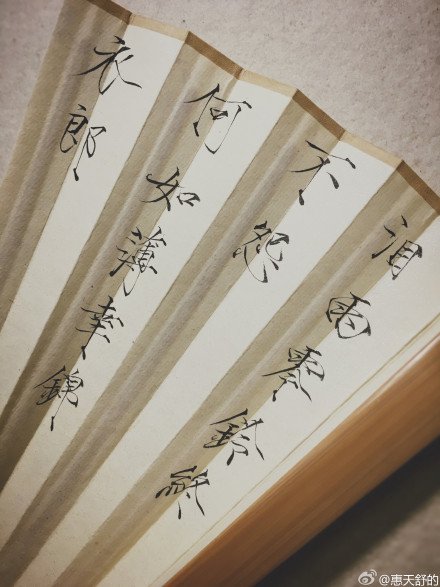 泪雨零鈴終
不怨
何如薄幸錦
衣郎
@惠天舒的